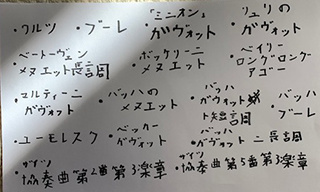 ・ワルツ ・ブーレ ・「ミニオン」ガヴォット ・リュリのガヴォット
・ベートーヴェン メヌエット長言周 ・ボッケリーニ メヌエット ・ベイリー ロングロングアゴー
・マルティーニ ガヴォット ・バッハの メヌエット ・バッハ ガヴォット ト短言周 ・バッハ ブーレ
・ユーモレスク ・ベッカー ガヴォット ・バッハ ガヴォット ニ長言周
・ザイツ 協奏曲第2番第3楽章 ・ザイツ 協奏曲第5番第3楽章